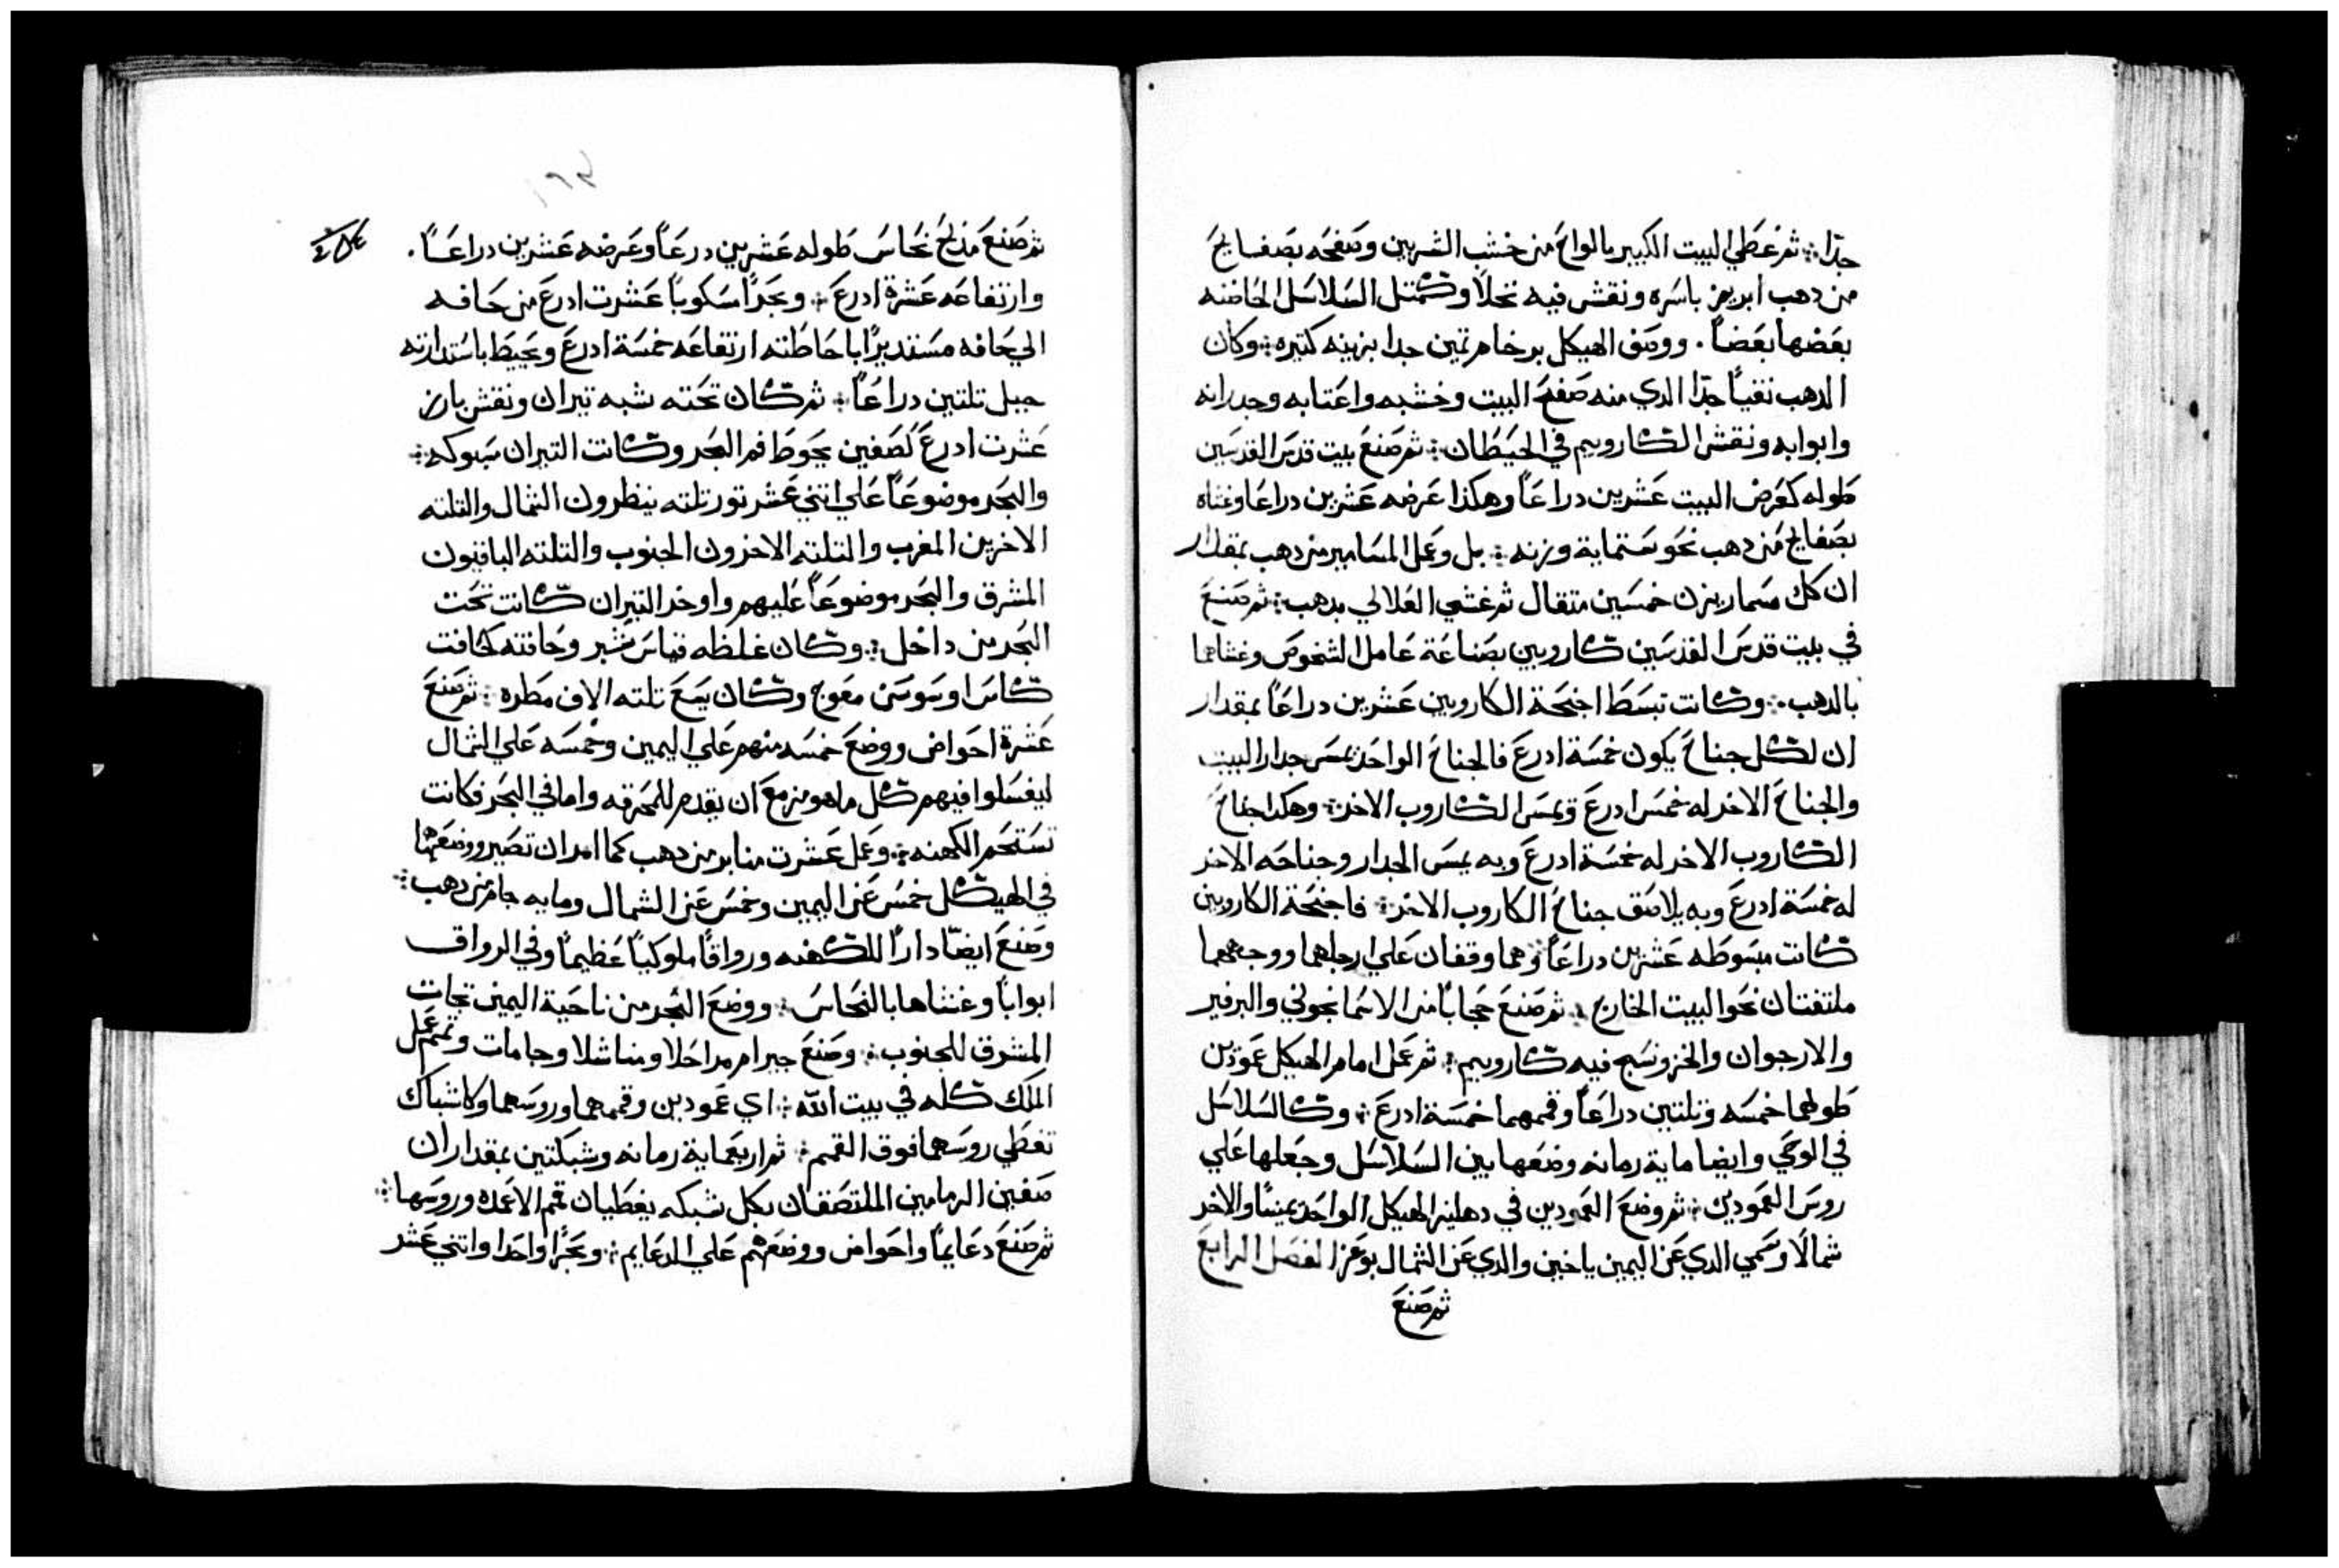 جدًا ⁘ ثم غطي البيت الكبير بالواح من خشب الشربين وصفحه بصفايح
من دهب ابريز باسره ونقش فيه نخلاً وكمتل السلاسل الحاضنه
بعضها بعضاً . ووصف الهيكل برخام تمين جدا بزينه كتيره ⁘ وكان
الدهب نقياً جدًا الدي منه صفح البيت وخشبه واعتابه وجدرانه
وابوابه ونقش الكاروبيم في الحيطان ⁘ ثم صنع بيت قدس القدسين
طوله كعرض البيت عشرين دراعاً وهكذا عرضه عشرين دراعا وغشاه
بصفايح من دهب نحو ستماية وزنه ⁘ بل وعمل المسامير من دهب بمقدار
ان كل مسمار يزن خمسين متقال ثم غشي العلالي بدهب ⁘ ثم صنع
في بيت قدس القدسين كاروبين بصناعة عامل الشخوص وغشاهما
بالدهب ⁘ وكانت تبسط اجنحة الكاروبين عشرين دراعاً بمقدار
ان لكل جناح يكون خمسة ادرع فالجناح الواحد يمس جدار البيت
والجناح الاخر له خمس ادرع ويمس الكاروب الاخر ⁘ وهكدا جناح
الكاروب الاخر له خمسة ادرع وبه يمس الجدار وجناحه الاخر
له خمسة ادرع وبه يلاصق جناح الكاروب الاخر ⁘ فاجنحة الكاروبين
كانت مبسوطه عشرين دراعاً وهما وقفان علي ارجلهما ووجههما
ملتفتان نحو البيت الخارج ⁘ ثم صنع حجاباً من الاسمانجوني والبرفير
والارجوان والخز ونسج فيه كاروبيم ⁘ ثم عمل امام الهيكل عمودين
طولهما خمسه وتلتين دراعاً وقممهما خمسة ادرع ⁘ وكالسلاسل
في الوحي وايضا ماية رمانه وضعها بين السلاسل وجعلها علي
روس العمودين ⁘ ثم وضع العمودين في دهليز الهيكل الواحد يميناً والاخر
شمالًا وسمي الدي عن اليمين ياخين والدي عن الشمال بوعز الفصل الرابع
ثم صنع
ثم صنع مدبح نحاس طوله عشرين درعاً وعرضه عشرين دراعاً .
وارتفاعه عشرة ادرع ⁘ وبحرًا مسكوباً عشرت ادرع من حافه
الي حافه مستديرًا باحاطته ارتفاعه خمسة ادرع ويحيط باستدارته
حبل تلتين دراعاً ⁘ ثم كان تحته شبه تيران ونقش بارز
عشرت ادرع كصفين يحوط فم البحر وكانت التيران مسبوكه ⁘
والبحر موضوعاً علي اتني عشر تور تلته ينظرون الشمال والتلته
الاخرين المغرب والتلته الاخرون الجنوب والتلته الباقيون
المشرق والبحر موضوعاً عليهم واوخر التيران كانت تحت
البحر من داخل ⁘ وكان غلظه قياس شبر وحافته كحافت
كاس او سوسن معوج وكان يسع تلته الاف مطره ⁘ ثم صنع
عشرة احواض ووضع خمسه منهم علي اليمين وخمسه علي الشمال
ليغسلوا فيهم كل ما هو مزمع ان يقدم للمحرقه واما في البحر فكانت
تستحم الكهنه ⁘ وعمل عشرت منابر من دهب كما امر ان تصير ووضعها
في الهيكل خمس عن اليمين وخمس عن الشمال ومايه جام من دهب ⁘
وصنع ايضًا دارًا للكهنه ورواقاً ملوكياً عظيماً وفي الرواق
ابواباً وغشاها بالنحاس ⁘ ووضع البحر من ناحية اليمين تجات
المشرق للجنوب ⁘ وصنع حيرام مراحلا ومناشلا وجامات وتمم عمل
الملك كله في بيت الله ⁘ اي عمودين وقممهما وروسهما وكاشباك
تغطي روسهما فوق القمم ⁘ ثم اربعماية رمانه وشبكتين بمقدار ان
صفين الرمامين الملتصقان بكل شبكه يغطيان قمم الاعمده وروسها ⁘
ثم صنع دعايماً واحواض ووضعهم علي الدعايم ⁘ وبحرًا واحدا واتني عشر